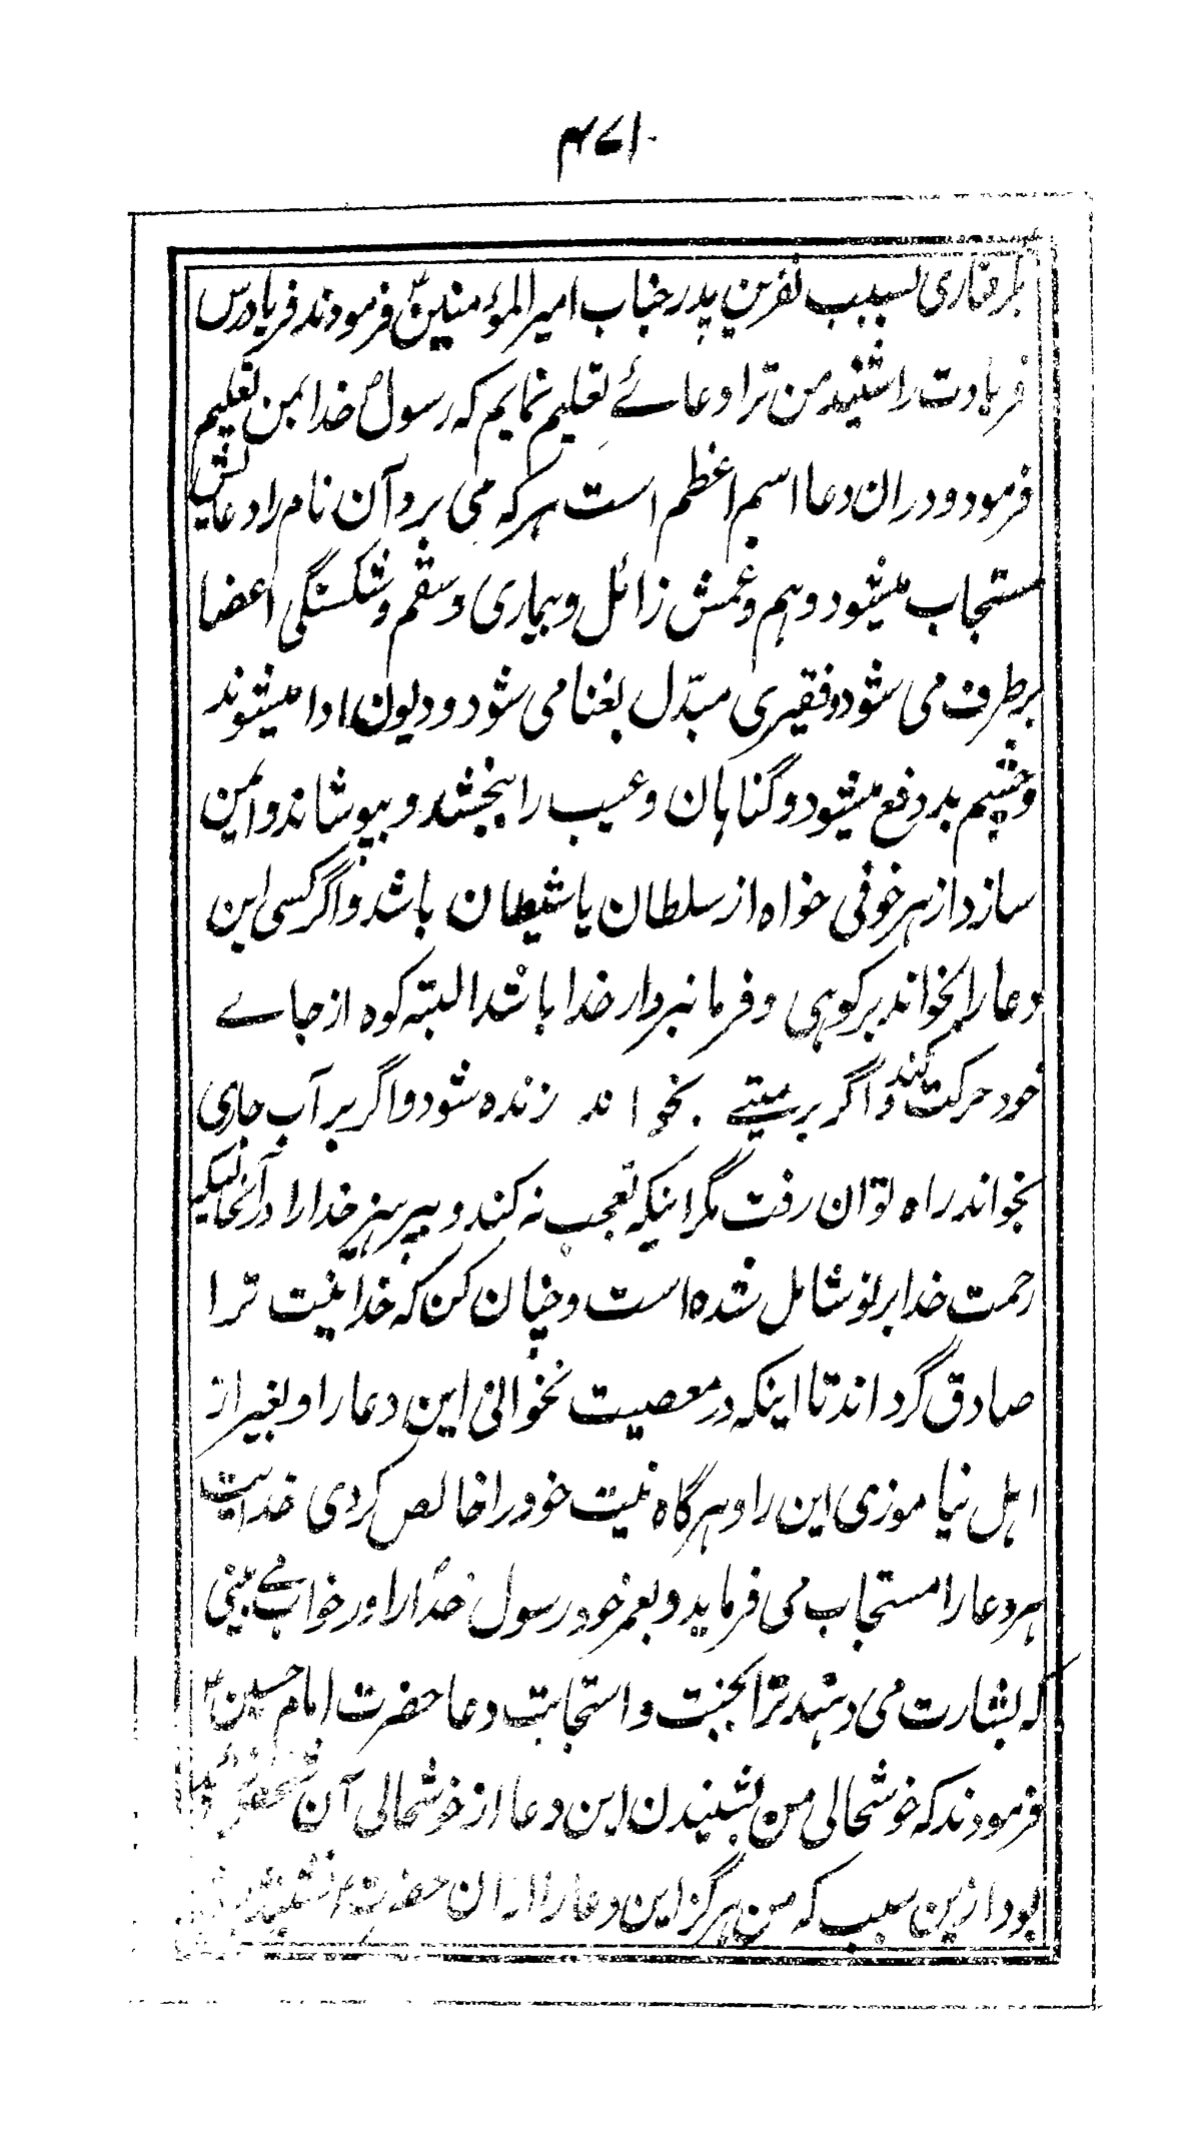 ۴۷۱
گرفتاری بسبب نفرین پدر جناب امیر المؤمنینؑ فرمودند فریادرس
فریادت را شنید من ترا دعائے تعلیم نمایم که رسولؐ خدا بمن تعلیم
فرمود و دران دعا اسم اعظم است هر که می برد آن نام را دعایش
مستجاب میشود و هم و غمش زائل و بیماری و سقم و شکستگی اعضا
برطرف می شود و فقیری مبدّل بغنا می شود و دیون ادا میشوند
و چشم بد دفع میشود و گناهان و عیب را بخشد و بپوشاند و ایمن
سازد از هر خوفی خواه از سلطان یا شیطان باشد و اگر کسی این
دعا را بخواند بر کوهی و فرمانبردار خدا باشد البته کوه از جاے
خود حرکت کند و اگر بر میتے بخواند زنده شود و اگر بر آب جاری
بخواند راه توان رفت مگر اینکه تعجب نه کند و بپرهیز خدا را در آنحالیکه
رحمت خدا بر تو شامل شده است و چنان کن که خدا نیت ترا
صادق گرداند تا اینکه در معصیت نخوانی این دعا را و بغیر از
اهل نیاموزی این را و هرگاه نیت خود را خالص کردی خدایت
هر دعا را مستجاب می فرماید و بعمر خود رسول خداؐ را در خواب مے بینی
که بشارت می دهند ترا بجنت و استجابت دعا حضرت امام حسینؑ
فرمودند که خوشحالی من بشنیدن این دعا از خوشحالی آن شخص
بود ازین سبب که من هرگز این دعا را از ان حضرتؑ نشنیده